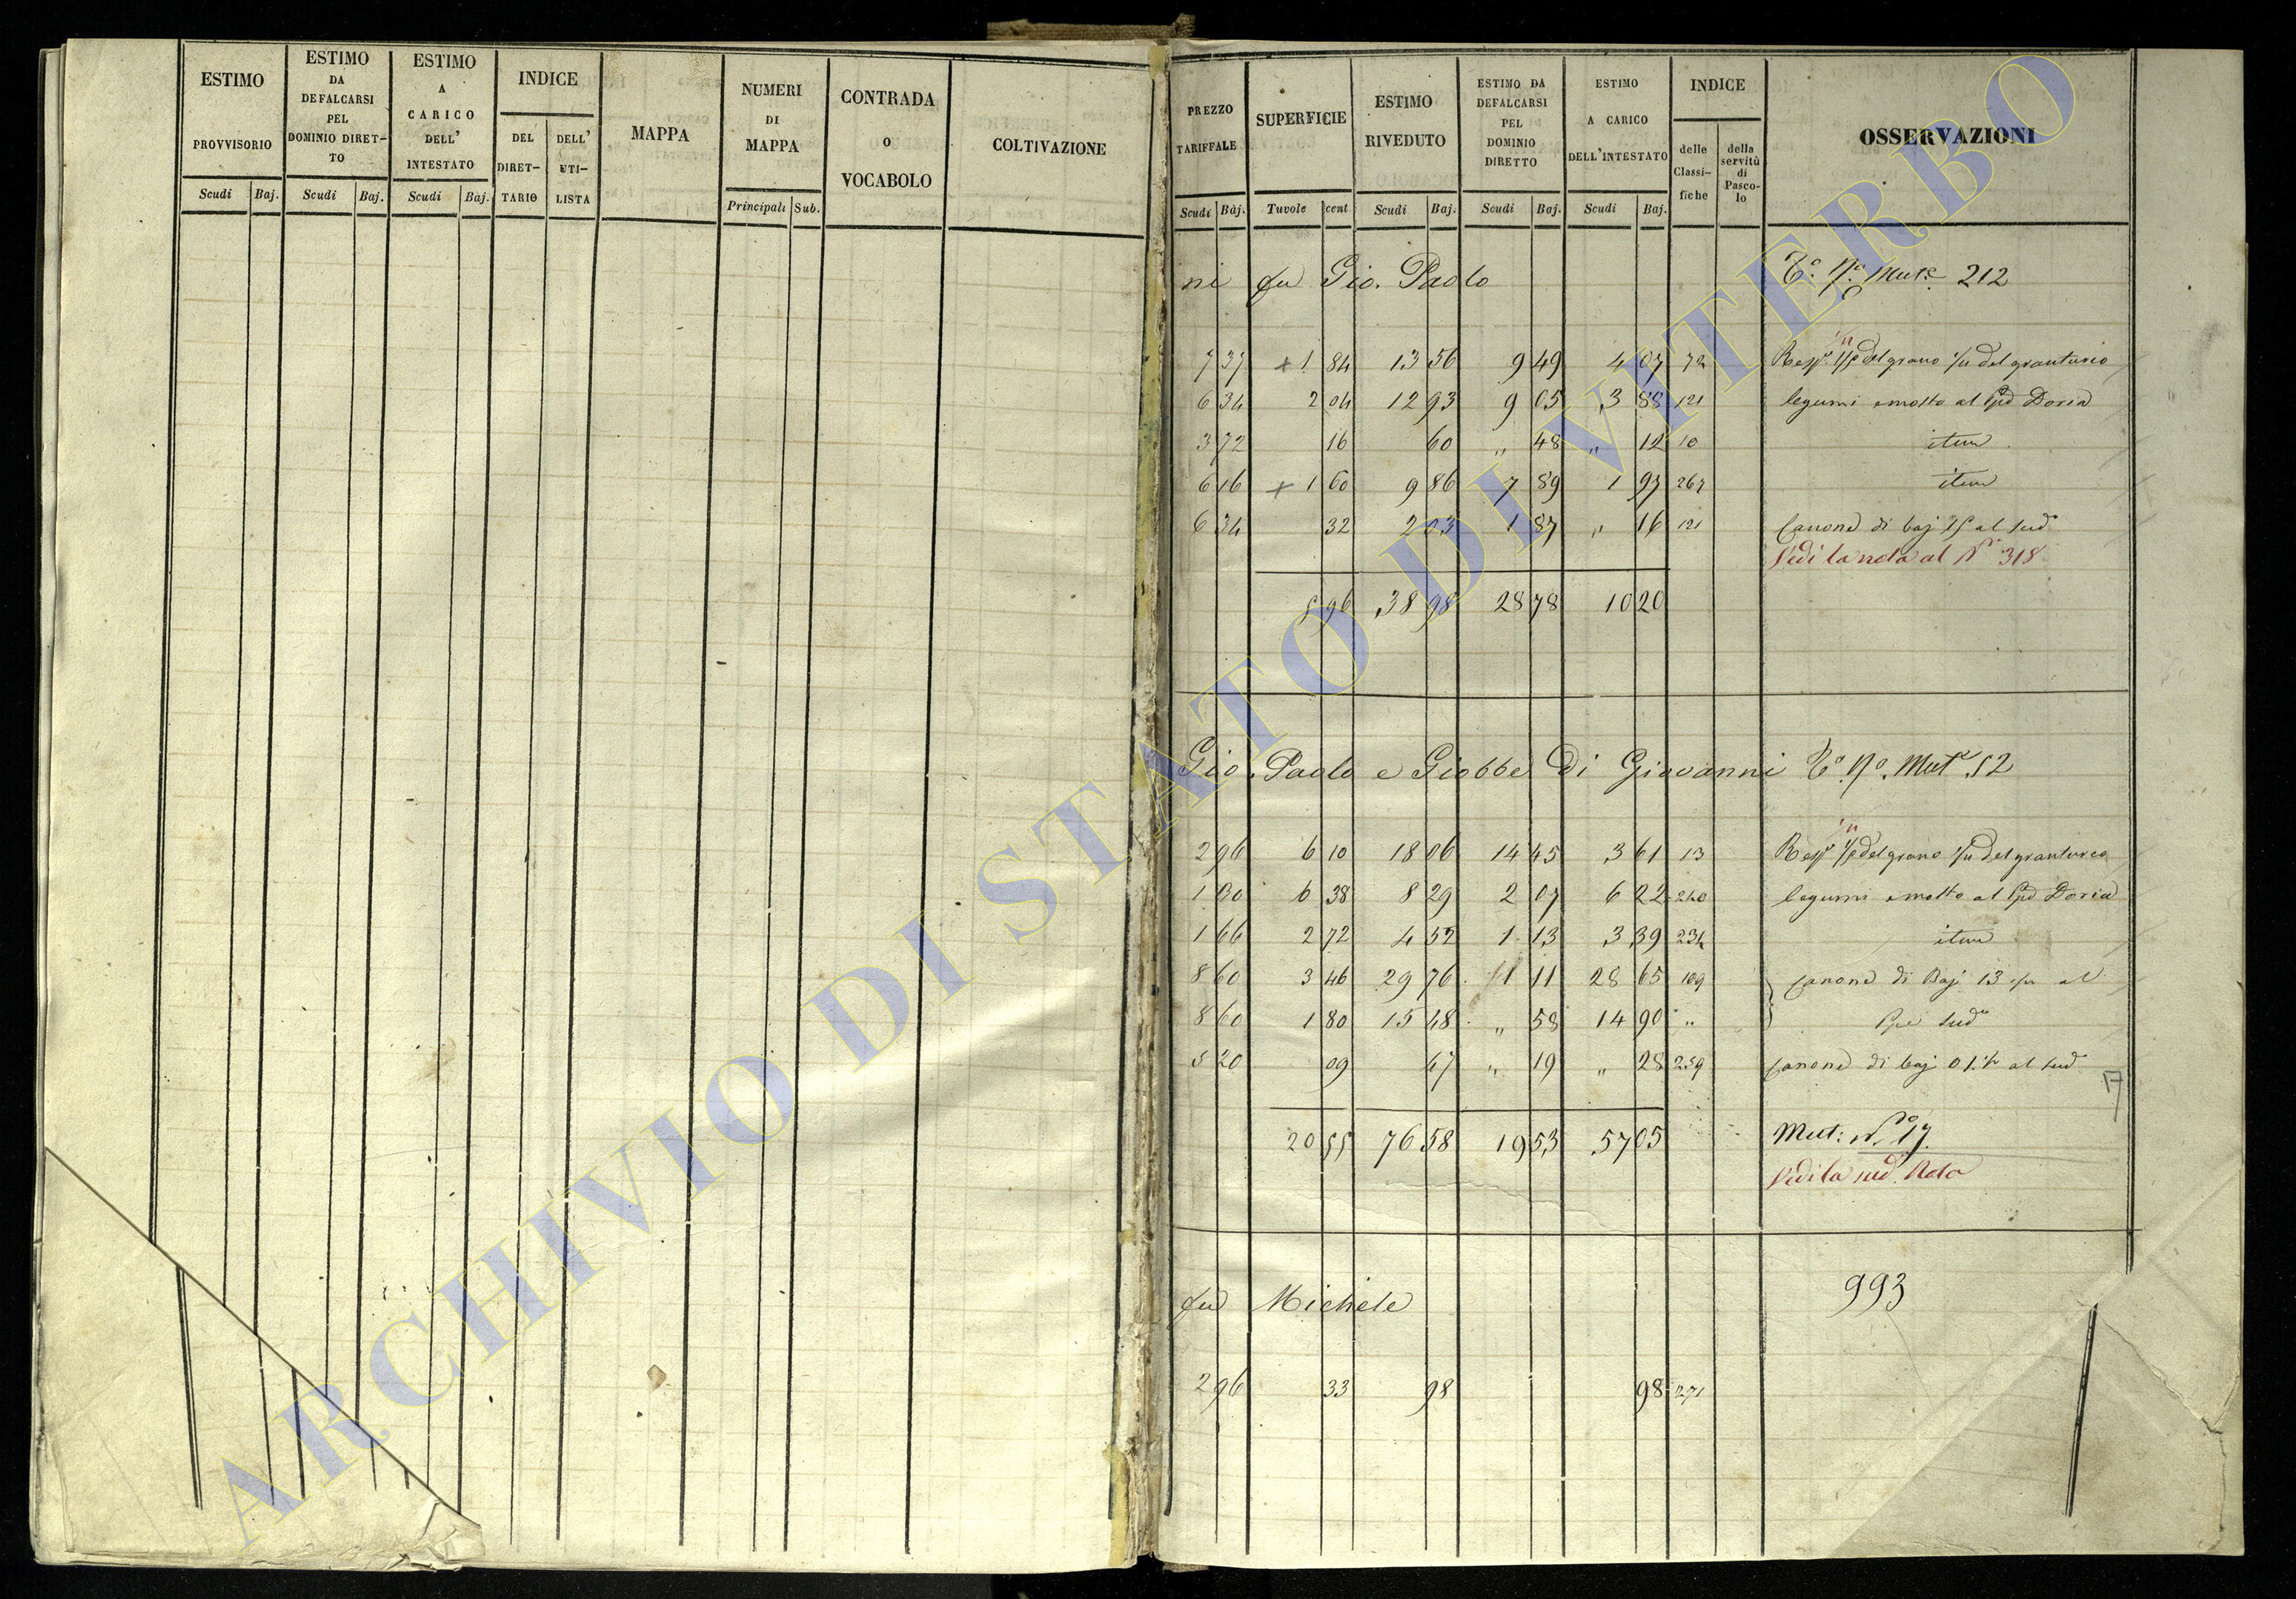 ESTIMO PROVVISORIO Scudi Baj.
ESTIMO DA DEFALCARSI PEL DOMINIO DIRET- TO Scudi Baj.
ESTIMO A CARICO DELL' INTESTATO Scudi Baj.
INDICE DEL DIRET- TARIO DELL' UTI- LISTA
MAPPA
NUMERI DI MAPPA Principali Sub.
CONTRADA o VOCABOLO
COLTIVAZIONE
PREZZO TARIFFALE Scudi Baj.
SUPERFICIE Tavole cent
ESTIMO RIVEDUTO Scudi Baj.
ESTIMO DA DEFALCARSI PEL DOMINIO DIRETTO Scudi Baj.
ESTIMO A CARICO DELL'INTESTATO Scudi Baj.
INDICE delle Classi- fiche della servitù di Pasco- lo
OSSERVAZIONI
ni fu Gio. Paolo 212
7 37 + 1 84 13 56 9 49 4 07 72 del grano del granturco
6 34 2 04 12 93 9 05 3 88 121 legumi e mosto al Doria
3 72 16 60 „ 48 „ 12 10 item
6 16 + 1 60 9 86 7 89 1 97 267 item
6 34 32 2 03 1 87 „ 16 121 Canone di baj al sud.º
Vedi la nota al Nº 318
5 96 38 98 28 78 10 20
Gio. Paolo e Giobbe di Giovanni Mut.e 52
2 96 6 10 18 06 14 45 3 61 13 del grano del granturco
1 30 6 38 8 29 2 07 6 22 240 legumi e mosto al Doria
1 66 2 72 4 52 1 13 3 39 234 item
8 60 3 46 29 76 1 11 28 65 109 Canone di Baj 13 al
8 60 1 80 15 48 „ 58 14 90 „ sud.º
5 20 09 47 „ 19 „ 28 259 Canone di baj al sud.
20 55 76 58 19 53 57 05 Mut: Nº 17
Vedi la sud. Nota
17
fu Michele 993
2 96 33 98 98 271
ARCHIVIO DI STATO DI VITERBO